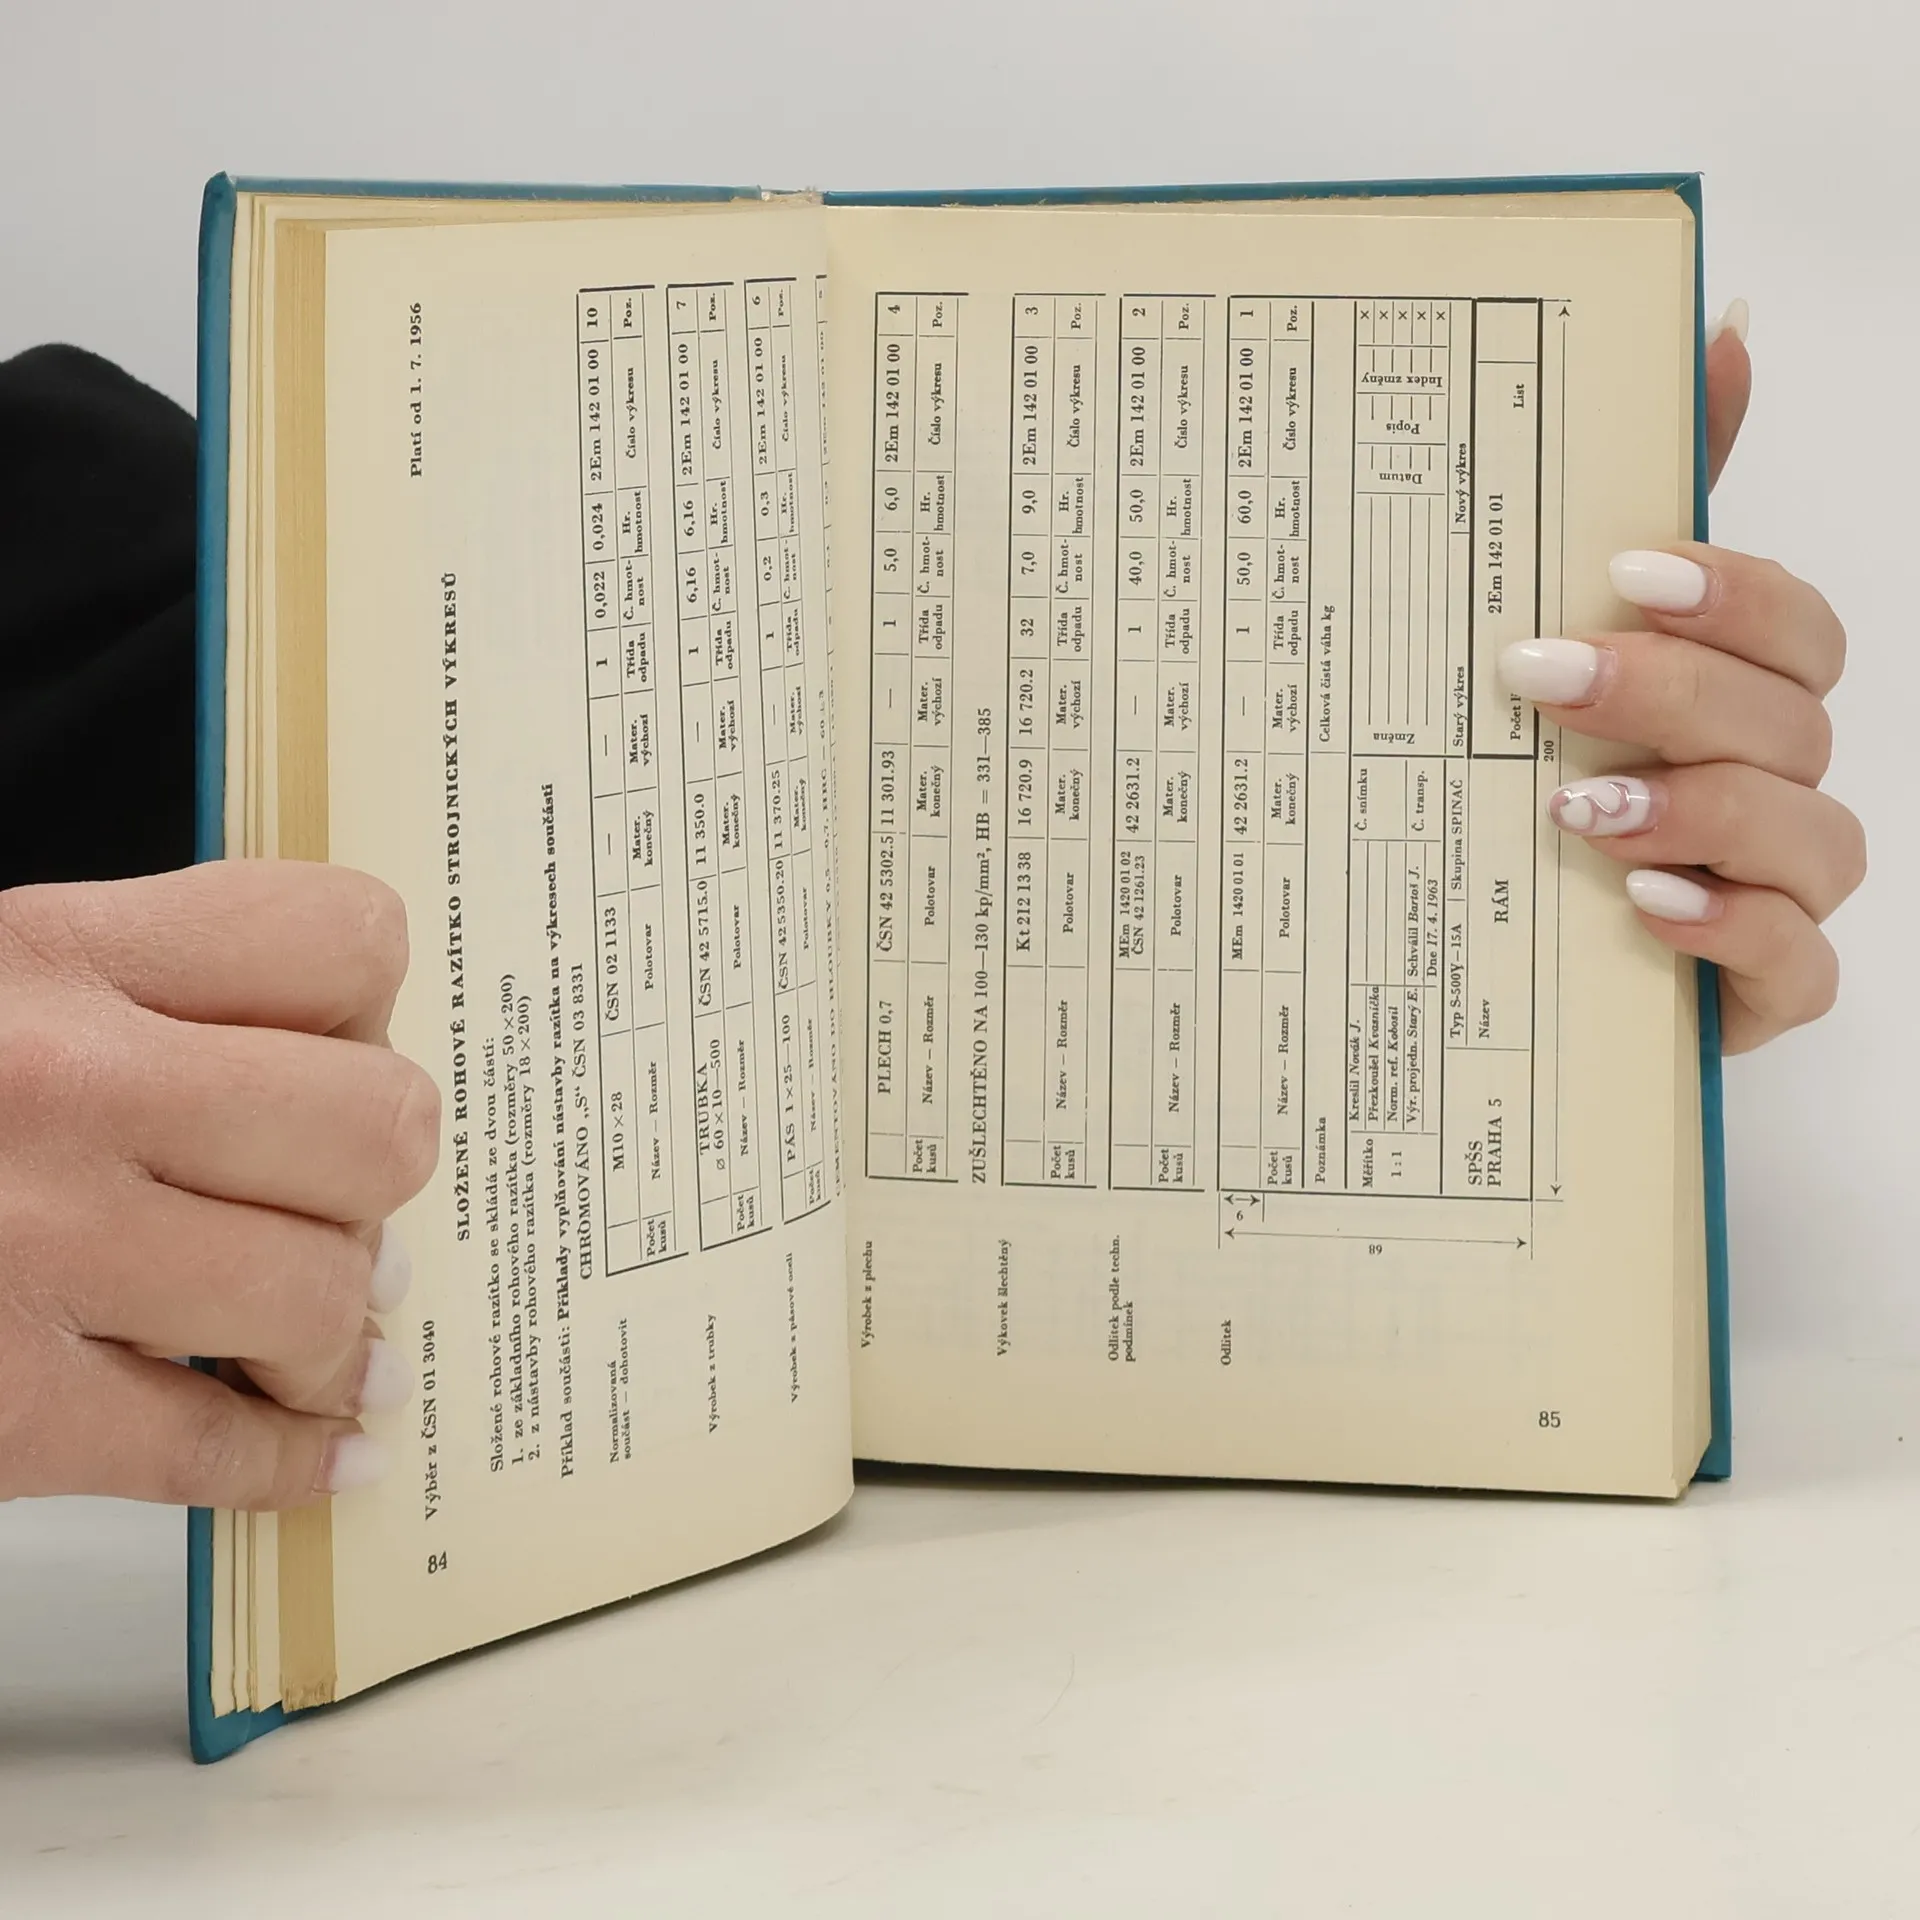 84
Výběr z ČSN 01 3040 Platí od 1. 7. 1956
SLOŽENÉ ROHOVÉ RAZÍTKO STROJNICKÝCH VÝKRESŮ
Složené rohové razítko se skládá ze dvou částí:
1. ze základního rohového razítka (rozměry 50×200)
2. z nástavby rohového razítka (rozměry 18×200)
Příklad součásti: Příklady vyplňování nástavby razítka na výkresech součástí
CHROMOVÁNO „S“ ČSN 03 8331
Normalizovaná
součást — dohotovit
M10×28 ČSN 02 1133 — — 1 0,022 0,024 2Em 142 01 00 10
Počet kusů Název — Rozměr Polotovar Mater. konečný Mater. výchozí Třída odpadu Č. hmot-nost Hr. hmotnost Číslo výkresu Poz.
Výrobek z trubky
TRUBKA
⌀ 60×10—500 ČSN 42 5715.0 11 350.0 — 1 6,16 6,16 2Em 142 01 00 7
Počet kusů Název — Rozměr Polotovar Mater. konečný Mater. výchozí Třída odpadu Č. hmot-nost Hr. hmotnost Číslo výkresu Poz.
Výrobek z pásové oceli
PÁS 1×25—100 ČSN 42 5350.20 11 370.25 — 1 0,2 0,3 2Em 142 01 00 6
Počet kusů Název — Rozměr Polotovar Mater. konečný Mater. výchozí Třída odpadu Č. hmot-nost Hr. hmotnost Číslo výkresu Poz.
CEMENTOVÁNO DO HLOUBKY 0,5—0,7, HRC = 60 ± 3
Výrobek z plechu
PLECH 0,7 ČSN 42 5302.5 11 301.93 — 1 5,0 6,0 2Em 142 01 00 4
Počet kusů Název — Rozměr Polotovar Mater. konečný Mater. výchozí Třída odpadu Č. hmot-nost Hr. hmotnost Číslo výkresu Poz.
ZUŠLECHTĚNO NA 100—130 kp/mm², HB = 331—385
Výkovek šlechtěný
Kt 212 13 38 16 720.9 16 720.2 32 7,0 9,0 2Em 142 01 00 3
Počet kusů Název — Rozměr Polotovar Mater. konečný Mater. výchozí Třída odpadu Č. hmot-nost Hr. hmotnost Číslo výkresu Poz.
Odlitek podle techn.
podmínek
MEm 1420 01 02
ČSN 42 1261.23 42 2631.2 — 1 40,0 50,0 2Em 142 01 00 2
Počet kusů Název — Rozměr Polotovar Mater. konečný Mater. výchozí Třída odpadu Č. hmot-nost Hr. hmotnost Číslo výkresu Poz.
Odlitek
MEm 1420 01 01 42 2631.2 — 1 50,0 60,0 2Em 142 01 00 1
Počet kusů Název — Rozměr Polotovar Mater. konečný Mater. výchozí Třída odpadu Č. hmot-nost Hr. hmotnost Číslo výkresu Poz.
9
68
Poznámka Celková čistá váha kg
Měřítko
1 : 1
Kreslil Novák J. Č. snímku
Přezkoušel Kvasnička
Norm. ref. Kobosil
Výr. projedn. Starý E. Schválil Bartoš J. Č. transp.
Dne 17. 4. 1963
Změna Datum Popis Index změny
× × × × ×
SPŠS
PRAHA 5
Typ S-500Y—15A Skupina SPINAČ Starý výkres Nový výkres
Název
RÁM
2Em 142 01 01
Počet List
200
85